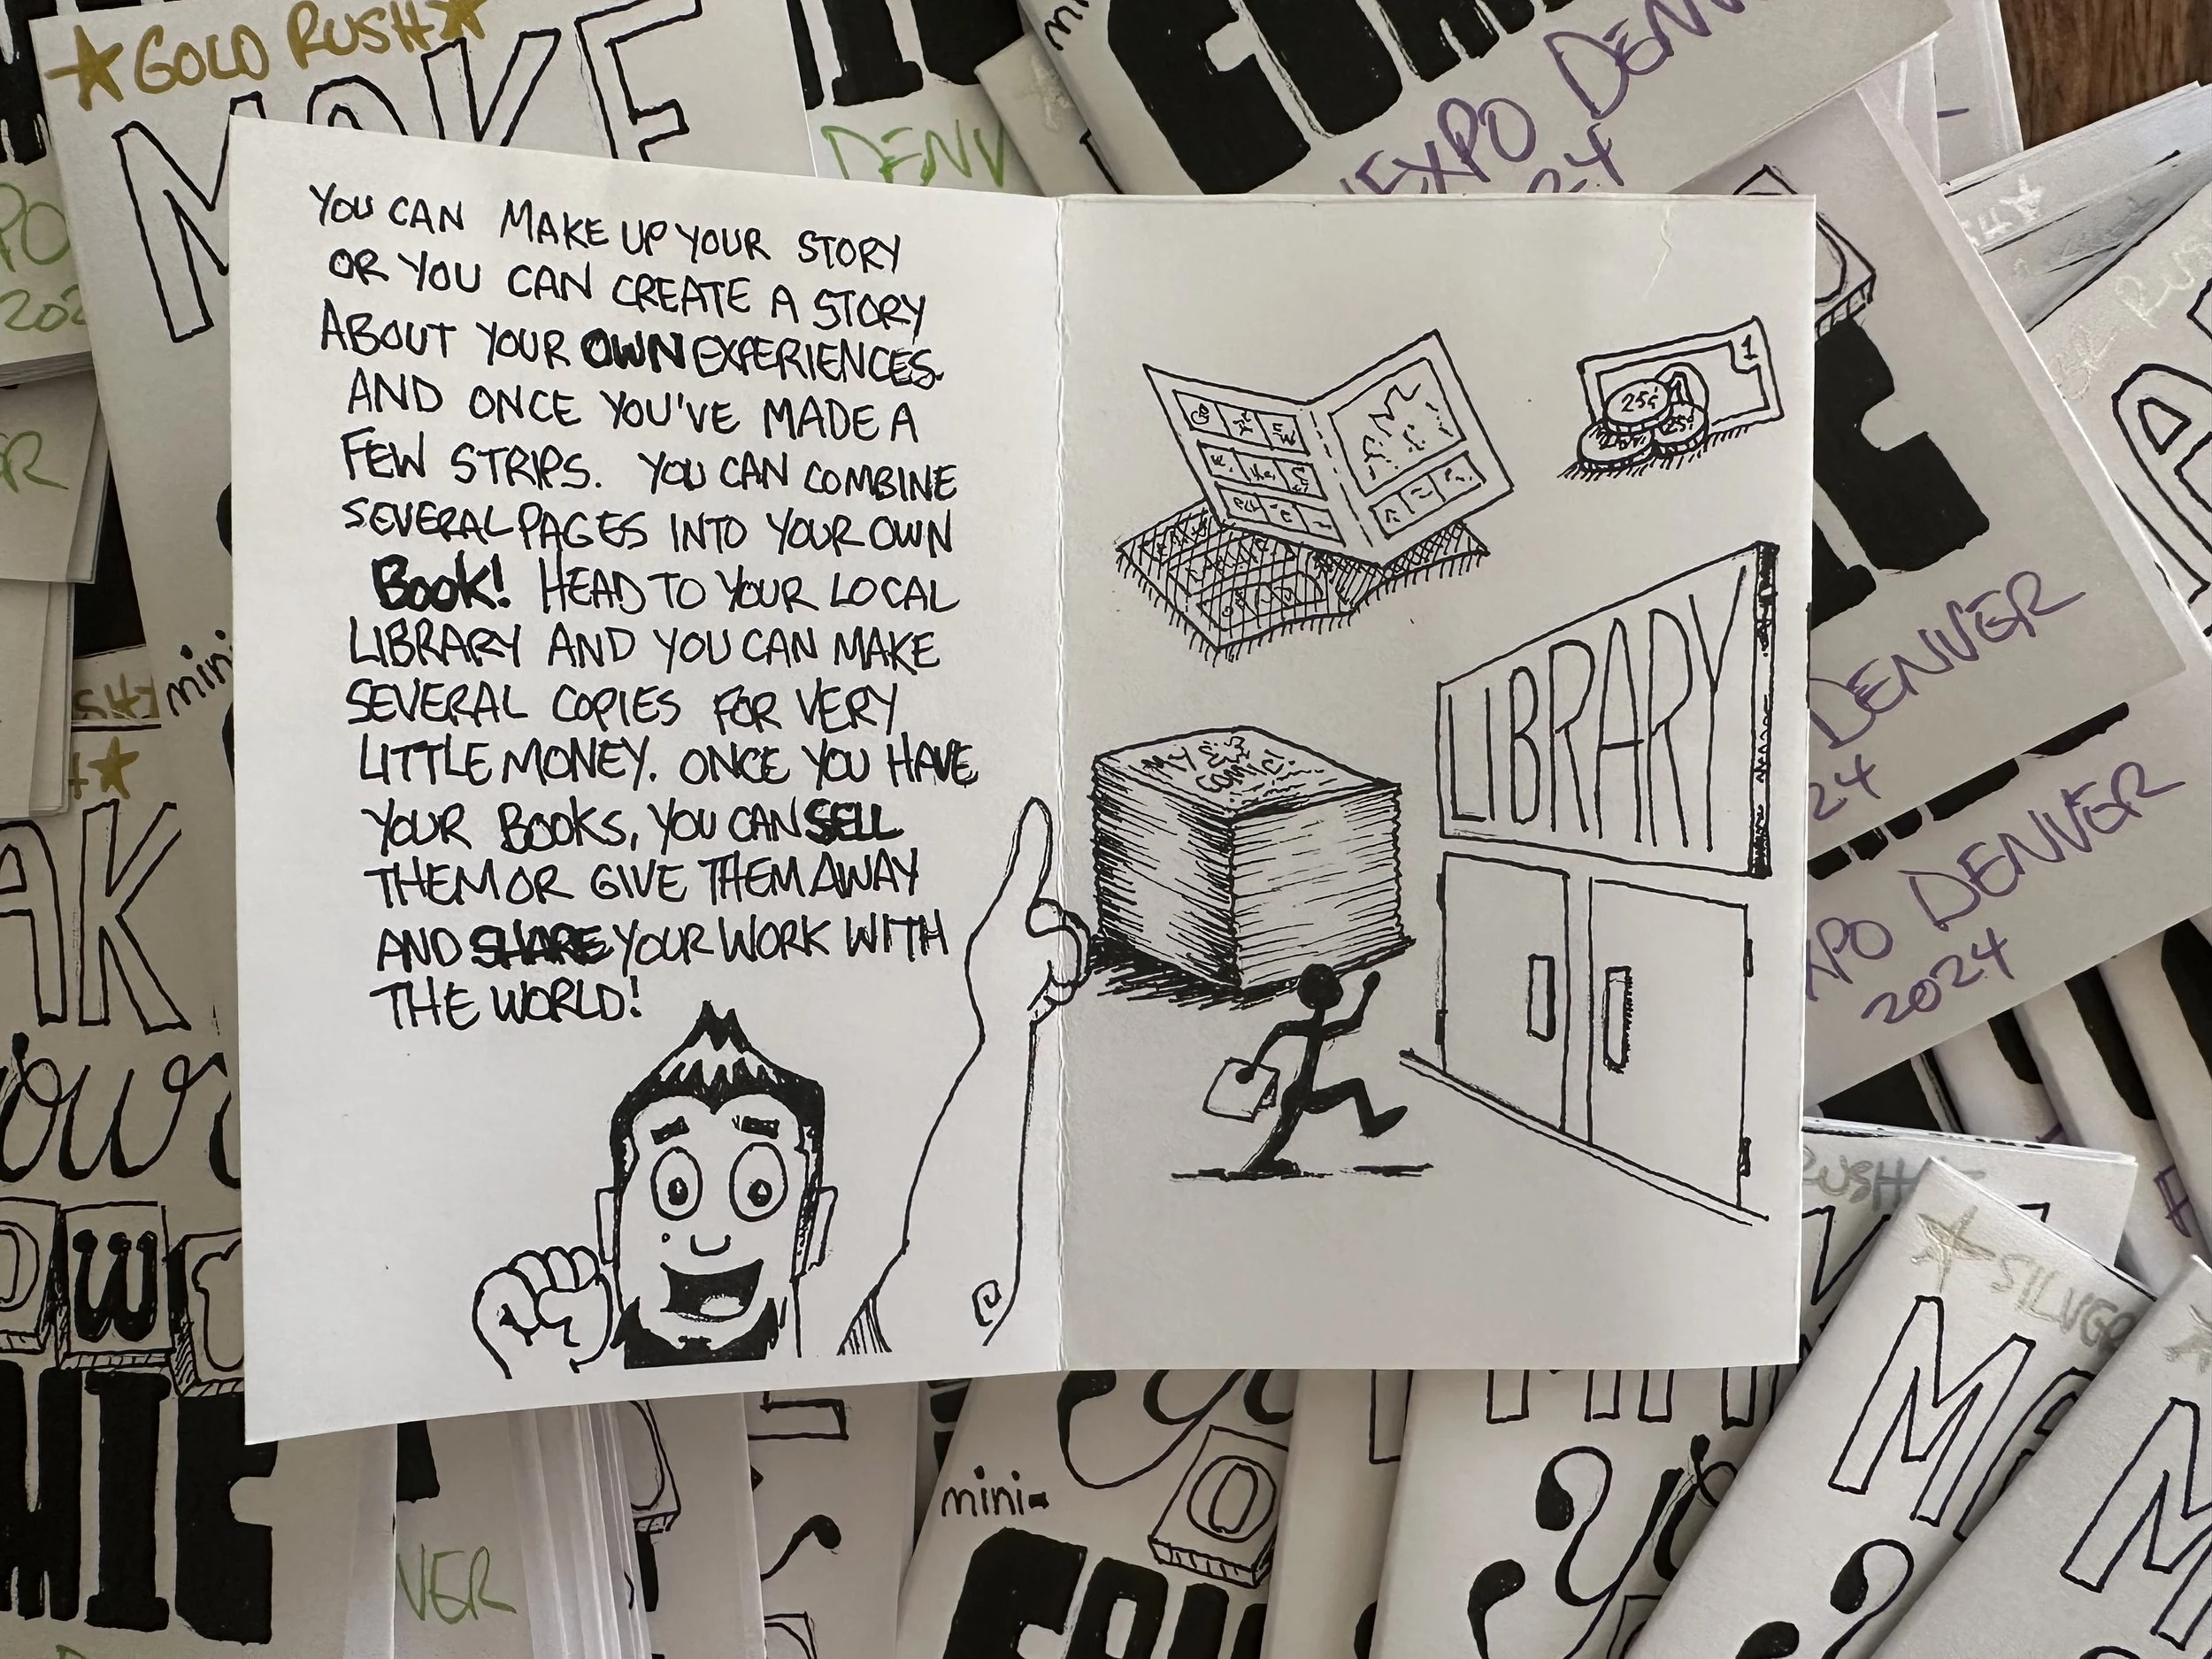 YOU CAN MAKE UP YOUR STORY
OR YOU CAN CREATE A STORY
ABOUT YOUR OWN EXPERIENCES.
AND ONCE YOU'VE MADE A
FEW STRIPS. YOU CAN COMBINE
SEVERAL PAGES INTO YOUR OWN
BOOK! HEAD TO YOUR LOCAL
LIBRARY AND YOU CAN MAKE
SEVERAL COPIES FOR VERY
LITTLE MONEY. ONCE YOU HAVE
YOUR BOOKS, YOU CAN SELL
THEM OR GIVE THEM AWAY
AND SHARE YOUR WORK WITH
THE WORLD!
1
25¢
25¢
LIBRARY
MY
COMIC!
GOLD RUSH
MAKE
DENV
EXPO DEN
24
202
mini
DENVER
24
EXPO DENVER
2024
mini-
VER
SILVER